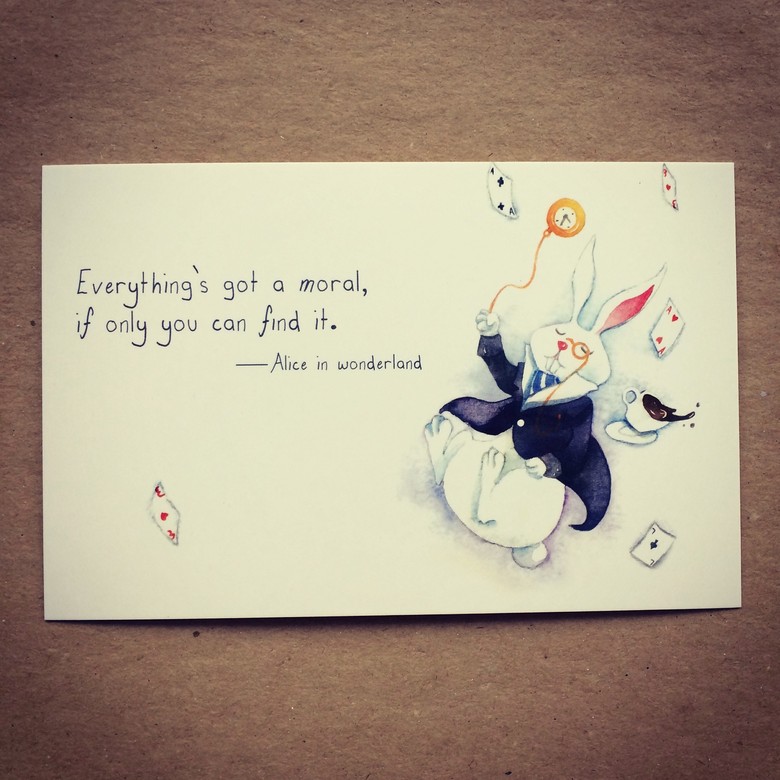 Everything's got a moral,
if only you can find it.
—Alice in wonderland